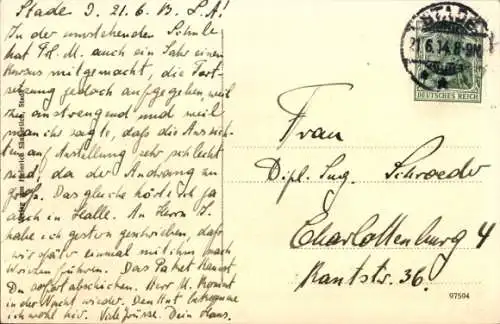 Stade d. 21.6.13. L. A!
In der umstehenden Schule
hat Frl. M. auch ein Jahr einen
Kursus mitgemacht, die Fort-
setzung jedoch aufgegeben, weil
zu anstrengend und weil
man ihr sagte, daß die Aussich-
ten auf Anstellung sehr schlecht
sind, da der Andrang zu
groß. Das gleiche hörte ich ja
auch in Halle. An Herrn J.
habe ich gestern geschrieben, daß
wir später einmal mit ihm nach
führen. Das Paket kannst
Du sofort abschicken. Herr M. kommt
in der Nacht wieder. Den Hut bekomme
ich wohl hier. Viele Grüsse. Dein Hans.
STADE
21.6.14.8-9N
DEUTSCHES REICH
Frau
Dipl. Ing. Schroeder
Charlottenburg 4
Kantstr. 36.
97594